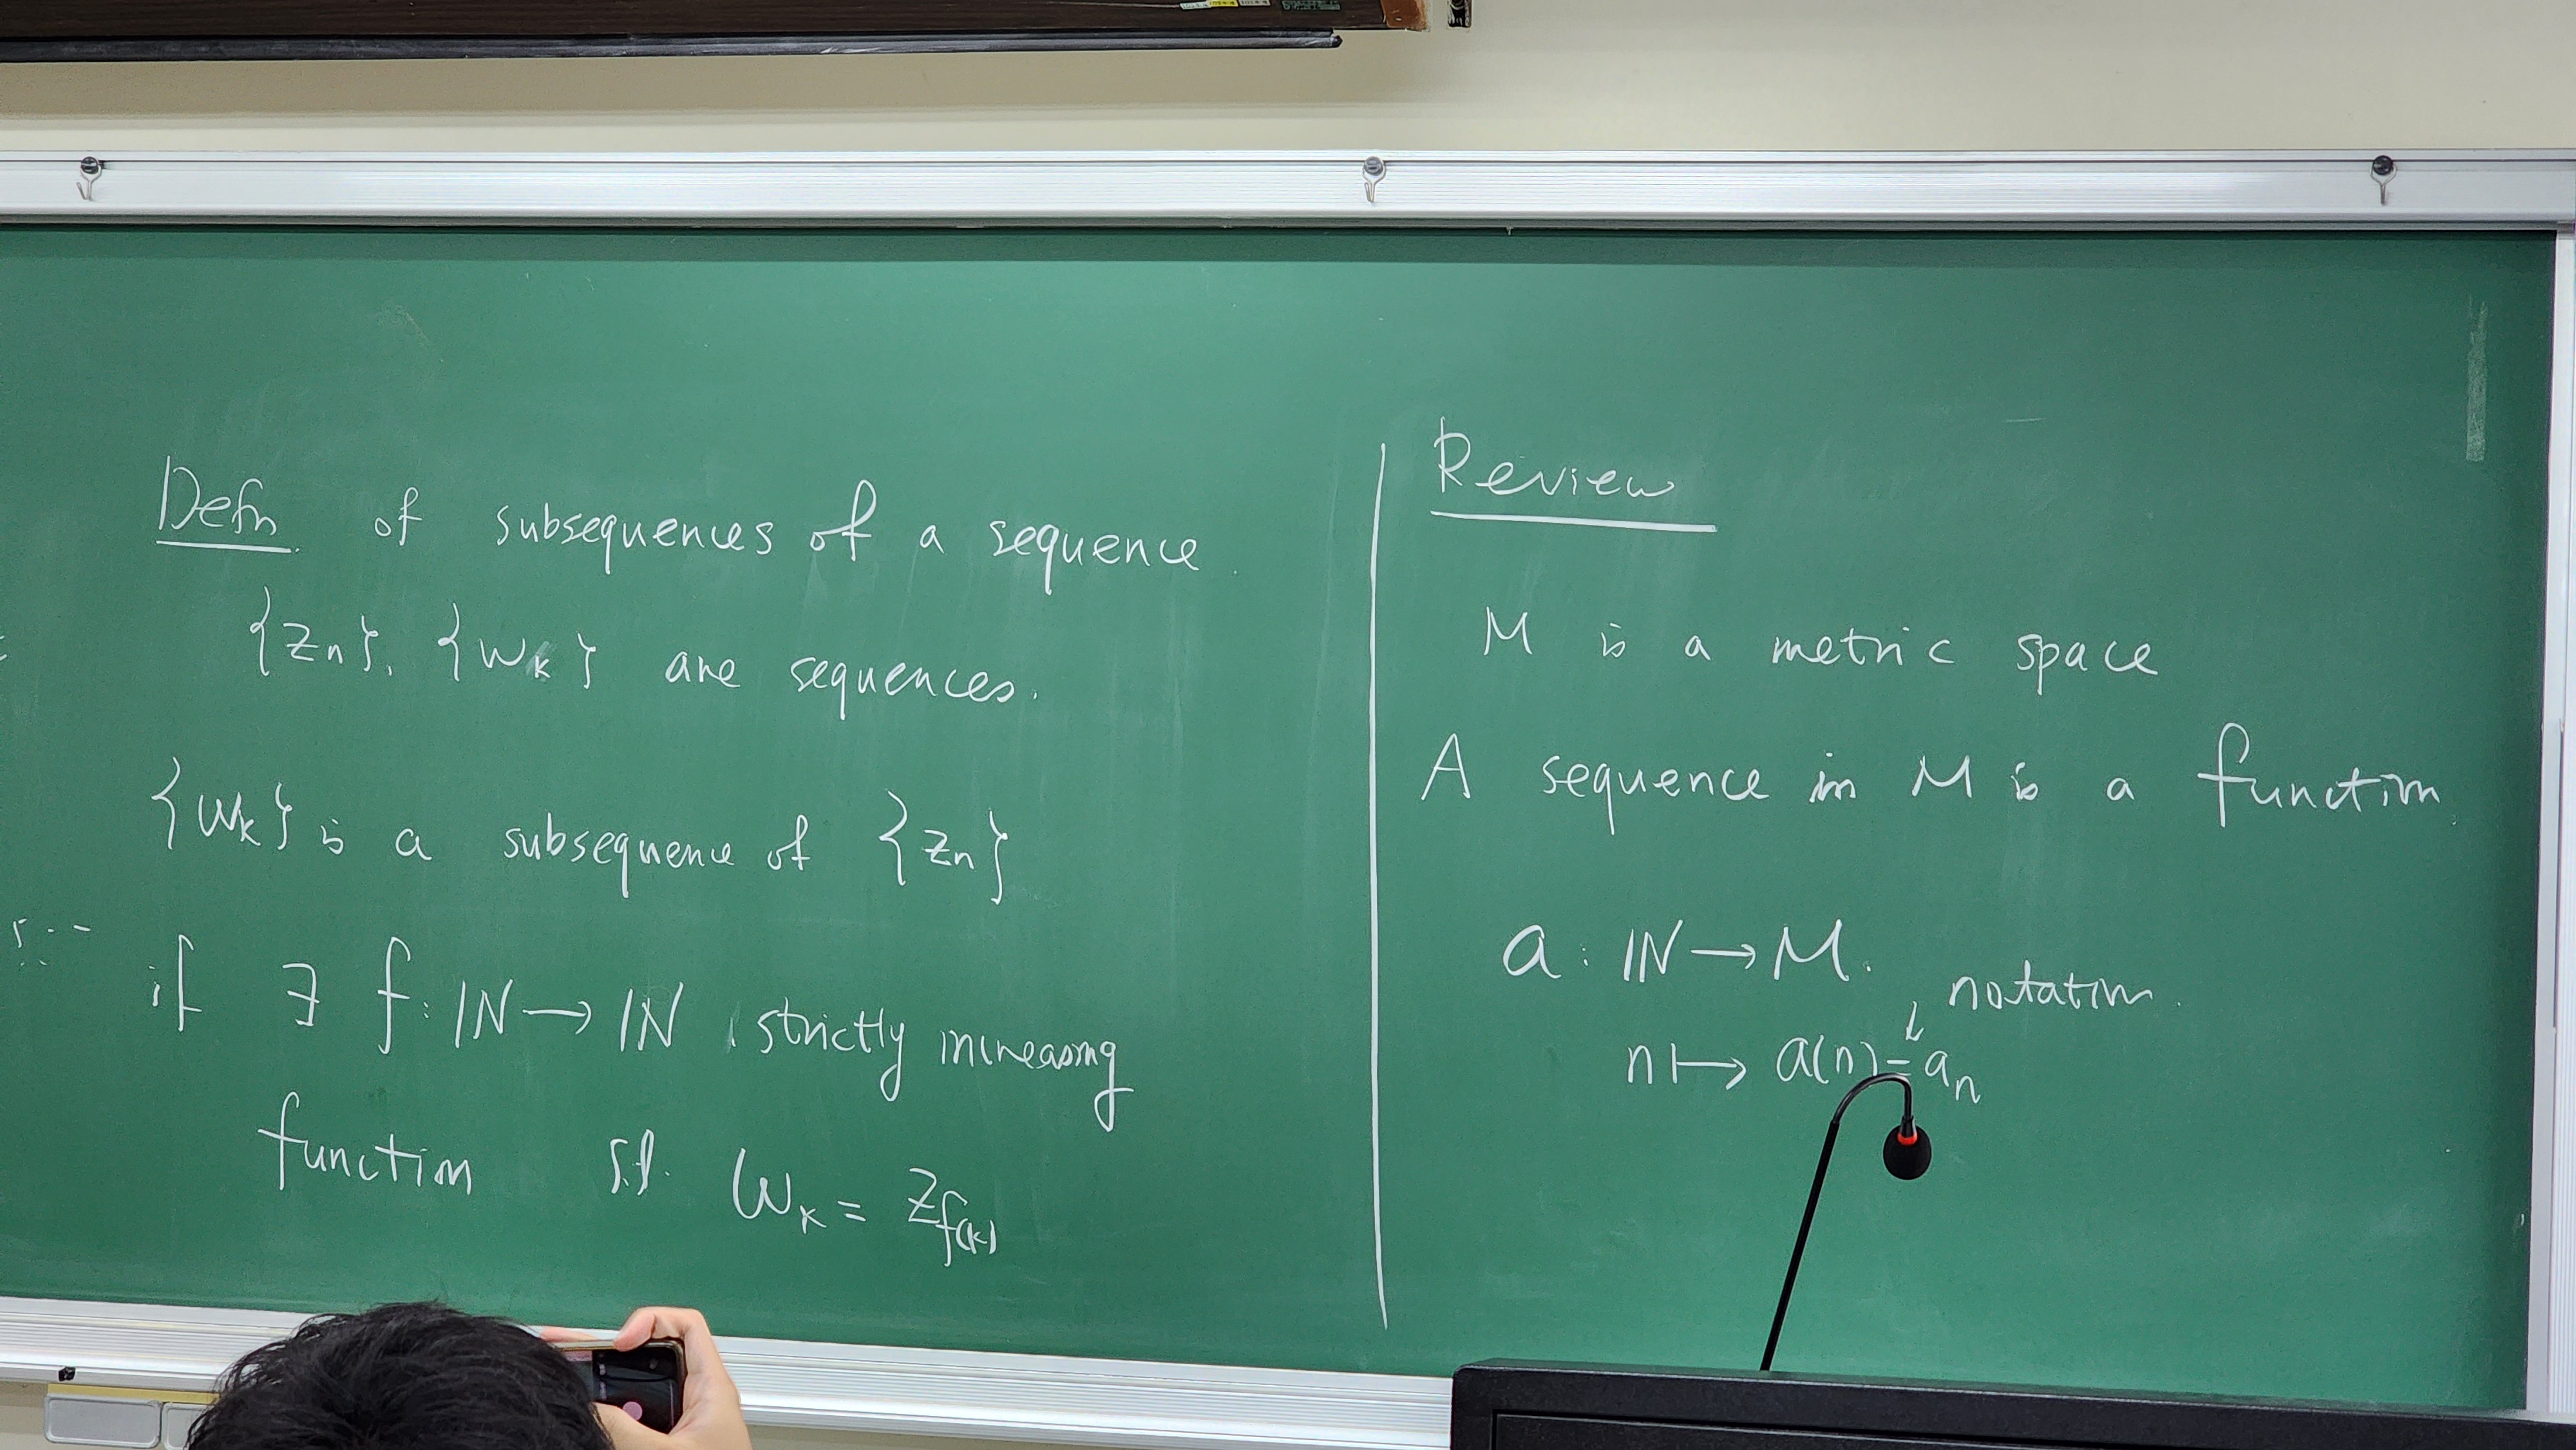 Defn of subsequences of a sequence.
{zn}, {wk} are sequences.
{wk} is a subsequence of {zn}
if ∃ f: ℕ → ℕ, strictly increasing
function s.t. wk = zf(k)
Review
M is a metric space
A sequence in M is a function.
a: ℕ → M.
↓ notation.
n ↦ a(n) = an